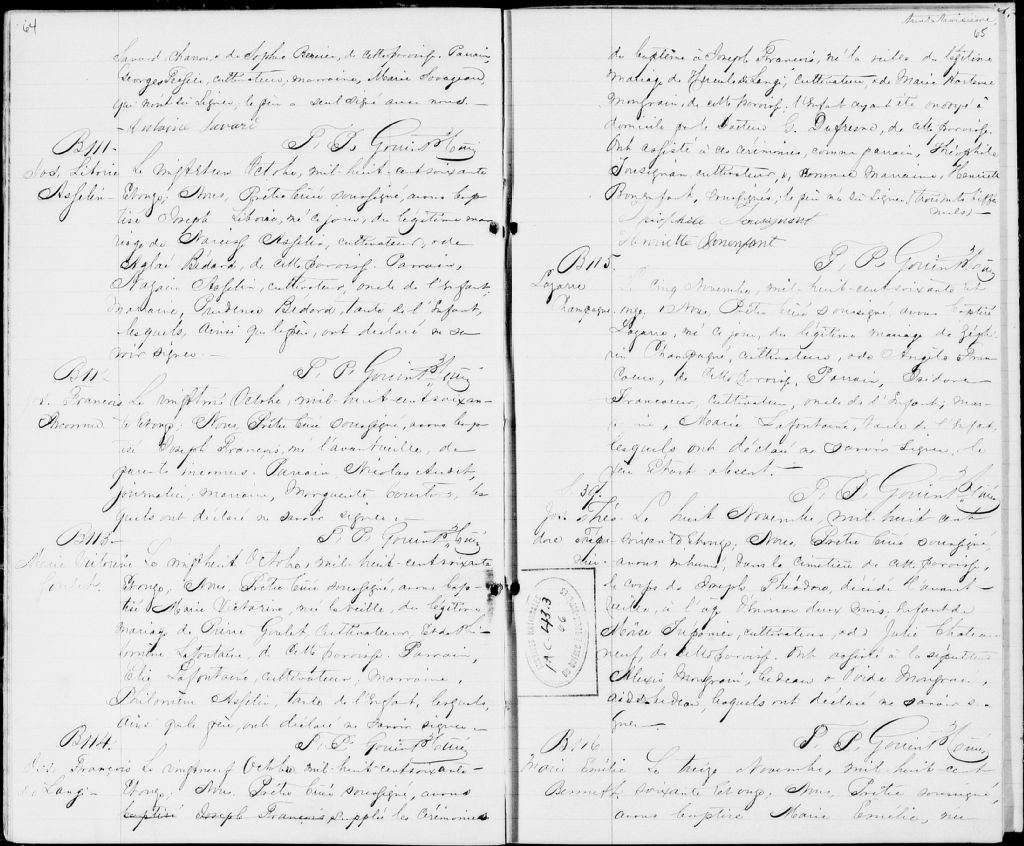 64
Savard Chanou, & de Sophie Bernier, de cette paroisse. Parrain,
Georges Asselin, cultivateur, marraine, Marie Sauvageau,
qui n'ont su signer, le père a seul signé avec nous. —
Antoine Savard
T. P. Gouin Ptre Curé
B111 —
Jos. Liboire
Asselin
Le vingt Octobre, mil-huit-cent soixante
et onze, Nous, Prêtre Curé soussigné, avons bap-
tisé Joseph Liboire, né ce jour, du légitime ma-
riage de Narcisse Asselin, cultivateur, & de
Aglaé Bédard, de cette paroisse. Parrain,
Nazaire Asselin, cultivateur, oncle de l'Enfant,
Marraine, Prudence Bédard, tante de l'Enfant,
lesquels, ainsi que le père, ont déclaré ne sa-
voir signer. —
T. P. Gouin Ptre Curé
B112
J. François
Inconnu
Le vingt trois Octobre, mil-huit-cent soixan-
te et onze, Nous, Prêtre Curé soussigné, avons bap-
tisé Joseph François, né l'avant veille, de
parents inconnus. Parrain Nicolas Audet,
journalier; marraine, Marguerite, les-
quels ont déclaré ne savoir signer. —
T. P. Gouin Ptre Curé
B113 —
Marie Victorine
Goulet
Le vingt huit Octobre, mil-huit-cent soixante
et onze, Nous, Prêtre Curé soussigné, avons bap-
tisé Marie Victorine, née la veille, du légitime
mariage de Pierre Goulet, cultivateur, et de Phi-
lomène Lafontaine, de cette paroisse. Parrain,
Elie Lafontaine, cultivateur; marraine,
Philomène Asselin, tante de l'Enfant, lesquels,
ainsi que le père, ont déclaré ne savoir signer —
T. P. Gouin Ptre Curé
B114.
Jos. François
de Langi —
Le vingt neuf Octobre mil-huit-cent soixante
et onze, Nous, Prêtre Curé soussigné, avons
baptisé Joseph François, suppléé les cérémonies
65
du baptême à Joseph François, né la veille du légitime
mariage de Hercule de Langi, cultivateur, & de Marie
Mongrain, de cette paroisse, l'Enfant ayant été ondoyé à
domicile par le Docteur G. Dufresne, de cette paroisse.
Ont assisté à ces cérémonies, comme parrain, Théophile
Tousignan, cultivateur, & comme Marraine, Henriette
Bonenfant, soussignés; le père n'a su signer,
Théophile Tousignant
Henriette Bonenfant
T. P. Gouin Ptre Curé
B115.
Lazare
Champagne
Le cinq Novembre, mil-huit-cent soixante et
onze, Nous, Prêtre Curé soussigné, avons baptisé
Lazare, né ce jour, du légitime mariage de Zéphi-
rin Champagne, cultivateur, & de Angèle Fran-
coeur, de cette paroisse. Parrain, Isidore
Francoeur, cultivateur, oncle de l'Enfant; mar-
raine, Marie Lafontaine, tante de l'Enfant,
lesquels ont déclaré ne savoir signer, le
père étant absent. —
T. P. Gouin Ptre Curé
S. 39.
Jos. Théo-
dore
Le huit Novembre, mil-huit cent
soixante et onze, Nous, Prêtre Curé soussigné,
avons inhumé, dans le cimetière de cette paroisse,
le corps de Joseph Théodore, décédé l'avant
veille, à l'âge d'environ deux mois. Enfant de
Moïse, cultivateur, & de Julie Chateau
neuf, de cette paroisse. Ont assisté à la sépulture
Alexis Mongrain, bedeau & Ovide Mongrain,
aide-bedeau, lesquels ont déclaré ne savoir si-
gner —
T. P. Gouin Ptre Curé
B116
Marie Emélie
Le treize Novembre, mil-huit-cent
soixante et onze, Nous, Prêtre soussigné,
avons baptisé Marie Emélie, née